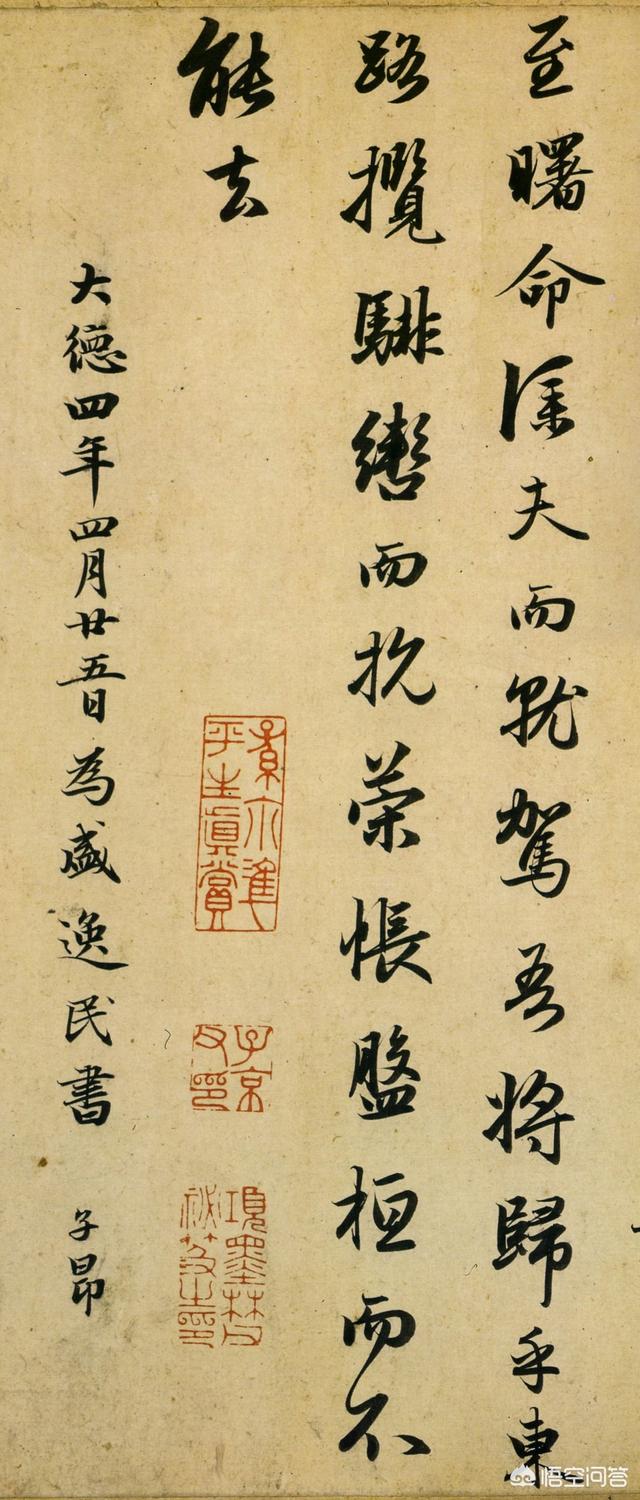 至曙命僕夫而就駕吾將歸乎東
路攬騑轡而抗策悵盤桓而不
能去
大德四年四月廿五日為盛逸民書 子昂
平生真賞
子京父印
項墨林父秘笈之印
悟空问答